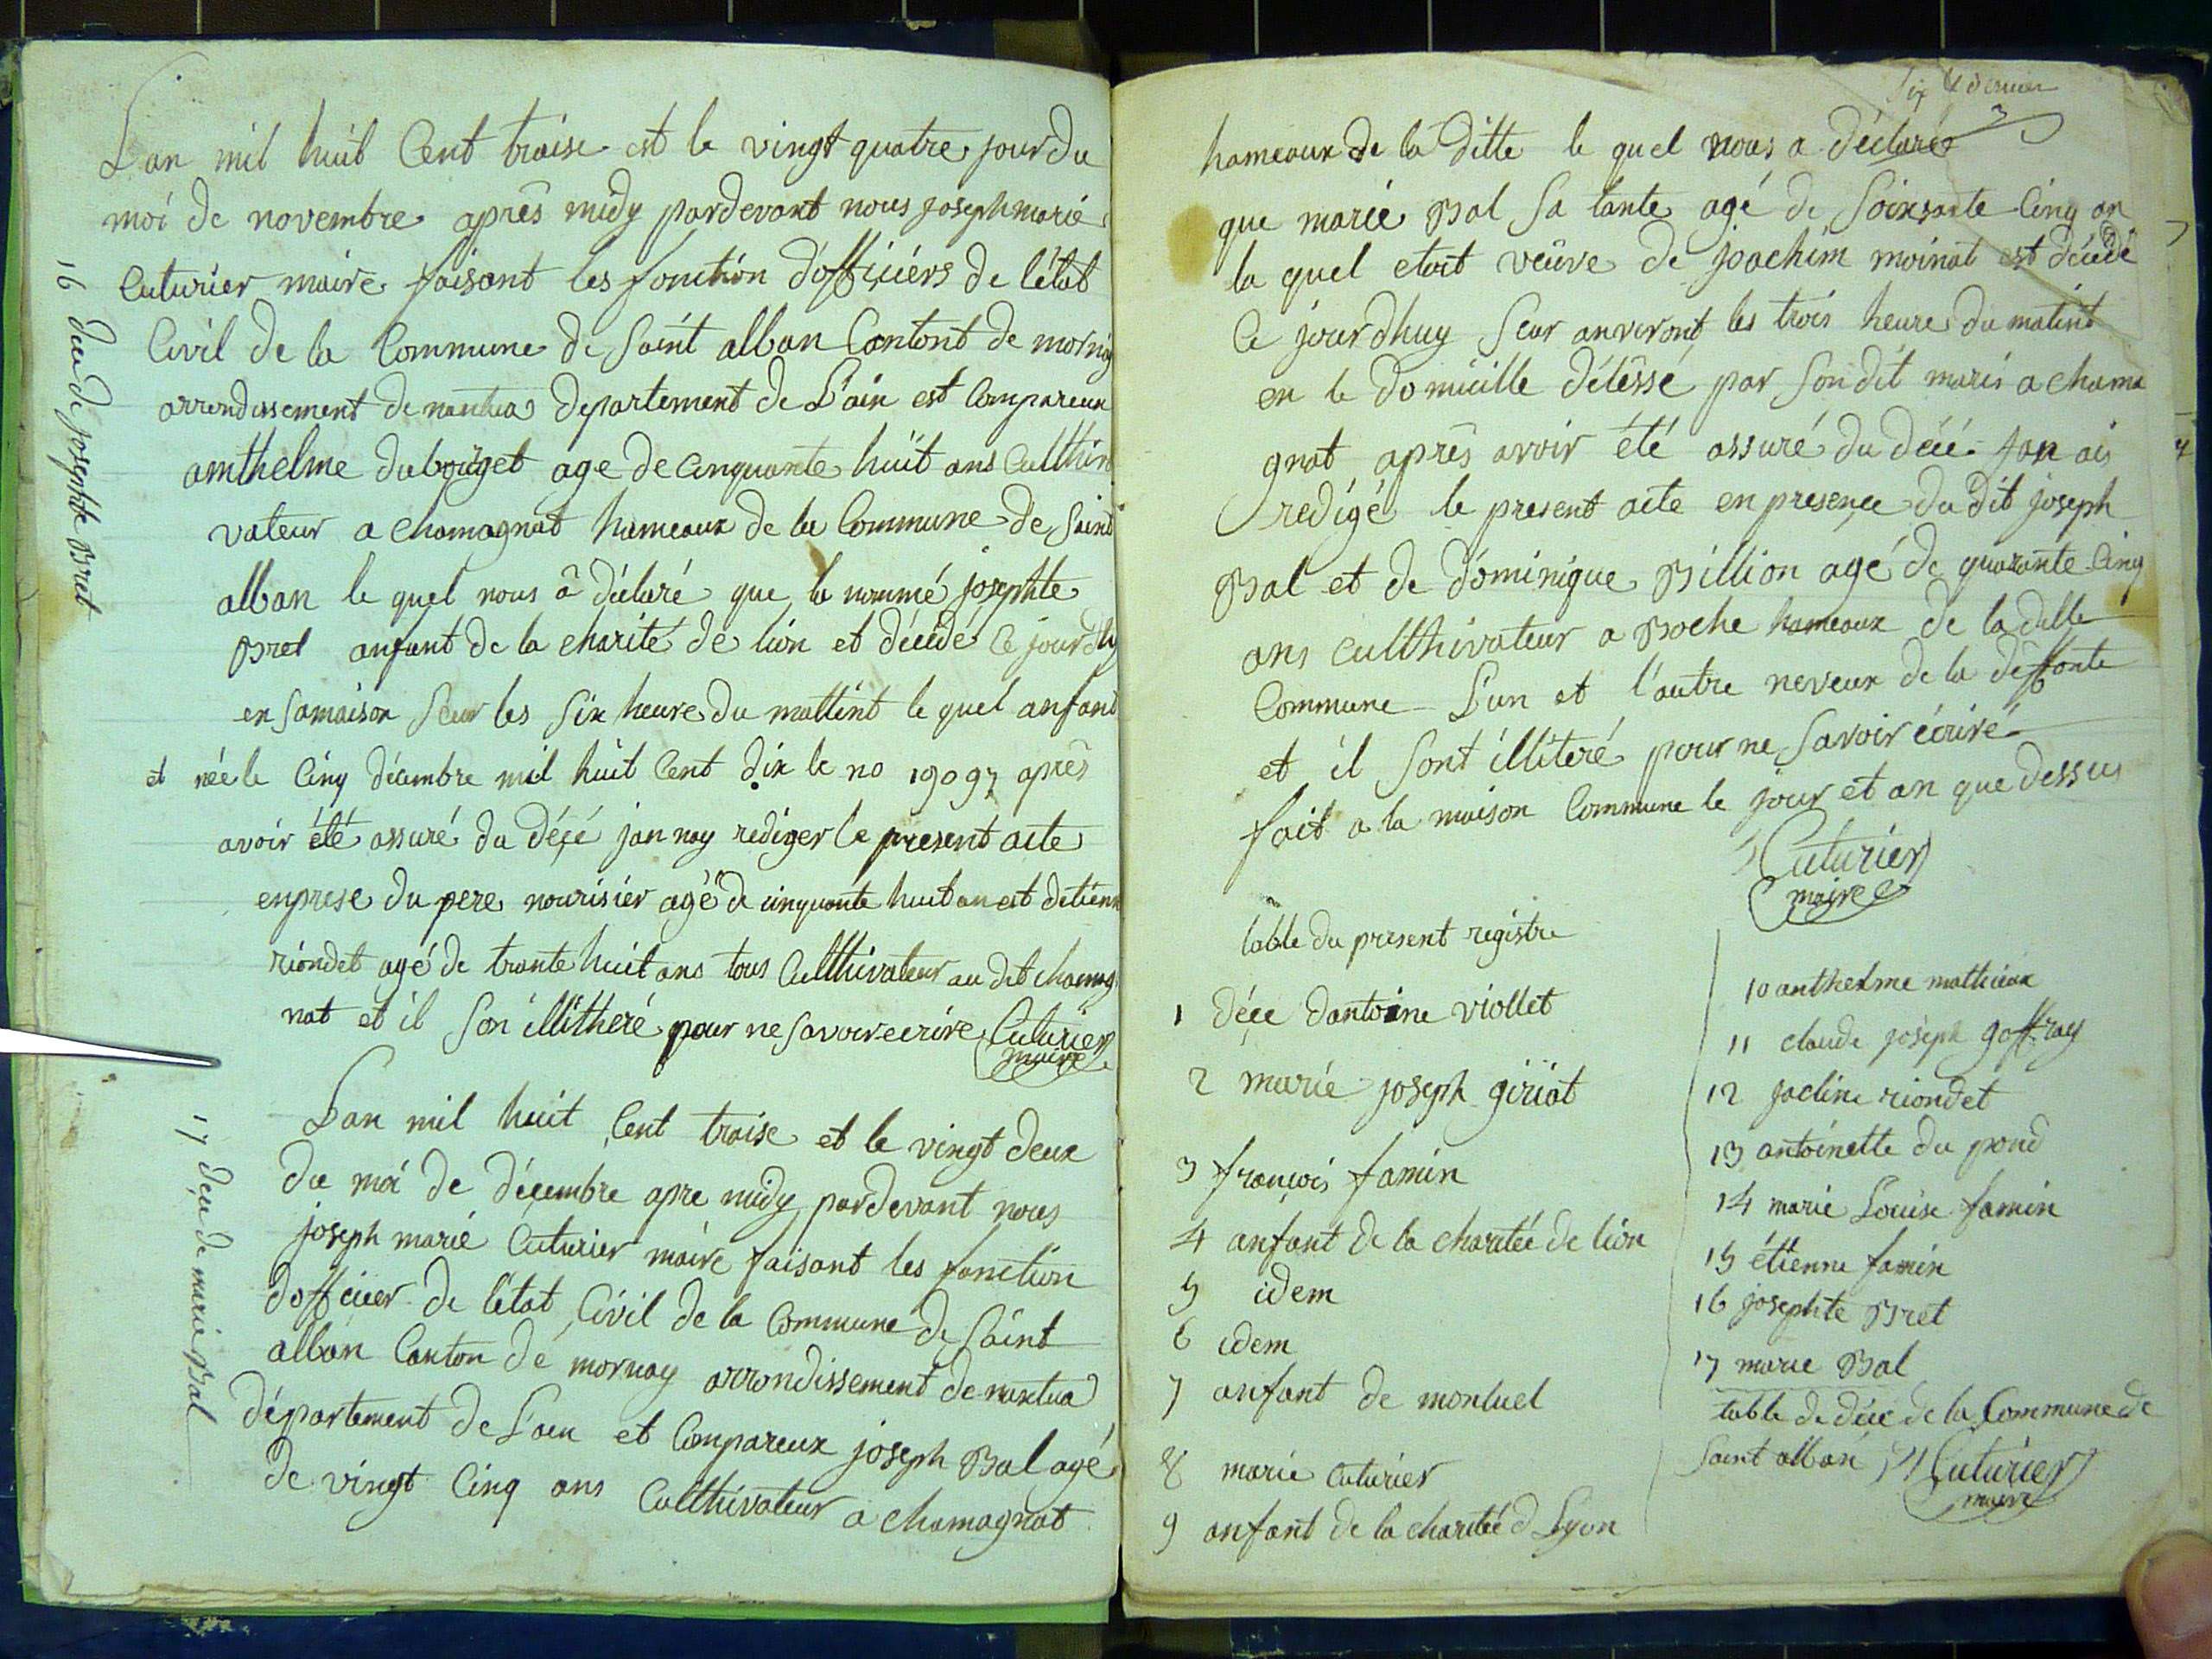 Lan mil huit Cent traise est le vingt quatre jour du
moi de novembre après midy pardevant nous joseph marie
Cuturier maire faisant les fonction d'officiers de l'état
Civil de la Commune de Saint alban Cantont de morn
arrondissement de nantua departement de L'ain est Compareux
amthelme dubourget age de cinquante huit ans Cullthi
vateur a chamagnat hameaux de la Commune de Saint
alban le quel nous â déclaré que la nommé josephte
Bret anfant de la charité de lion et décédé Ce jourdhy
en samaison Seur les Six heure du mattint le quel anfant
et née le Cinq décembre mil huit Cent dix le no 19097 après
avoir été assuré du décé jan nay rediger le present acte
enprese du pere nourisier agé de cinquante huit an est detienn
riondet agé de trante huit ans tous Cullthivateur au dit chamag
nat et il Son illitheré pour ne Savoire ecrire Cuturier
maire
16 décé de josephte Bret
Lan mil huit Cent traise et le vingt deux
du moi de décembre apre midy pardevant nous
joseph marié Cuturier maire faisant les fonction
dofficier de l'état Civil de la Commune de Saint
alban Canton de mornay arrondissement de nantua
département de L'ain et Compareux joseph Bal agé
de vingt Cinq ans Cullthivateur a chamagnat
17 décé de marie Bal
Six & dernier
hameaux de la ditte le quel nous a déclaré
que marie Bal Sa tante agé de Soixsante Cinq an
la quel etoit veûve de joachim moinat est décédé
Ce jourdhuy Seur anviront les trois heure du matint
en le domicille délèssé par Son dit maris a chama
gnat après avoir été assuré du décé jan ais
redigé le present acte en presençe du dit joseph
Bal et de dominique Billion agé de quarante Cinq
ans cullthivateur a Boche hameaux de la ditte
Commune L'un et l'autre neveux de la deffonte
et il Sont illiteré pour ne Savoir écrire
fait a la maison Commune le jour et an que dessus
Cuturier
maire
table du present registre
1 déce dantoine viollet
2 marie joseph giriat
3 françois famin
4 anfant de la charitée de lion
5 idem
6 idem
7 anfant de monluel
8 marie Cuturier
9 anfant de la charitée d Lyon
10 anthelme mathieux
11 claude joseph goffray
12 jacline riondet
13 antoinette du pond
14 marie Louise famin
15 étienne famin
16 josephte Bret
17 marie Bal
table de déce de la Commune de
Saint alban Cuturier
maire